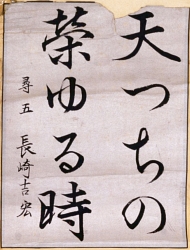 天つちの
榮ゆる時
尋五 長崎吉宏